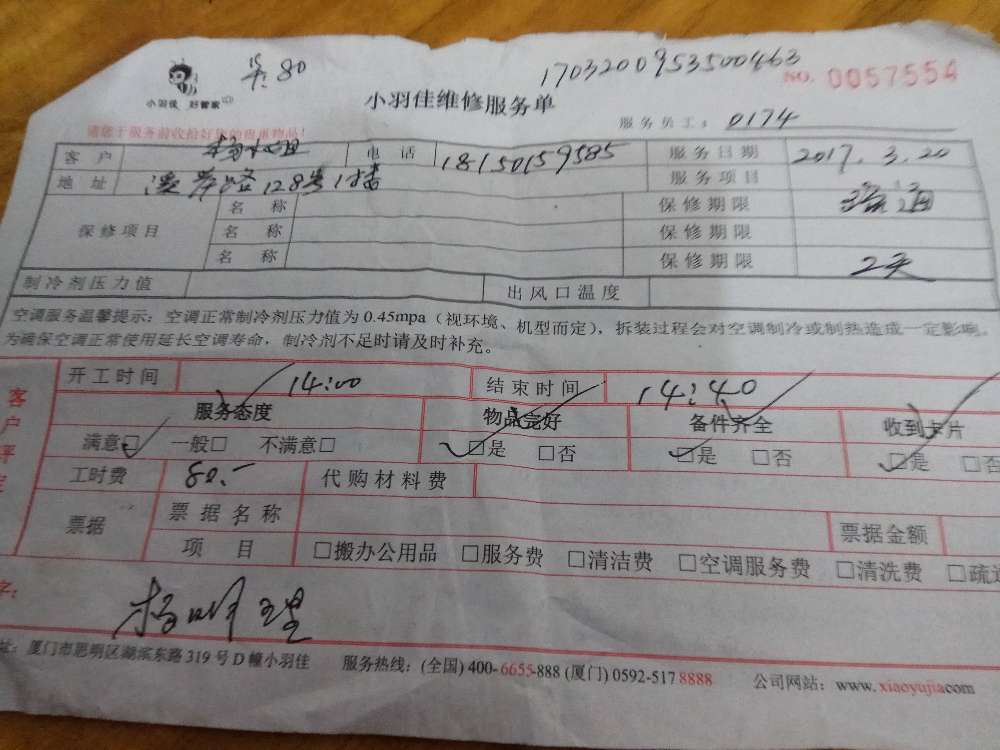 小羽佳 好管家
80
1703200953500463
小羽佳维修服务单
NO. 0057554
请您于服务前收拾好您的贵重物品!
服务员工: 0174
客户 电话 18150159585 服务日期 2017.3.20
地址 128号1楼 服务项目 疏通
保修项目 名称 保修期限
名称 保修期限
名称 保修期限 2天
制冷剂压力值 出风口温度
空调服务温馨提示: 空调正常制冷剂压力值为 0.45mpa (视环境、机型而定), 拆装过程会对空调制冷或制热造成一定影响。
为确保空调正常使用延长空调寿命, 制冷剂不足时请及时补充。
客户评定
开工时间 14:00 结束时间 14:40
服务态度 物品完好 备件齐全 收到卡片
满意□ 一般□ 不满意□ □是 □否 □是 □否 □是 □否
工时费 80.- 代购材料费
票据 票据名称 票据金额
项目 □搬办公用品 □服务费 □清洁费 □空调服务费 □清洗费 □疏通
字:
杨明理
址: 厦门市思明区湖滨东路 319 号 D 幢小羽佳 服务热线: (全国) 400-6655-888 (厦门) 0592-517 8888 公司网站: www.xiaoyujia.com